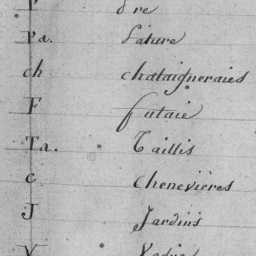 Pa. Pature
ch chataigneraies
F futaie
Ta. Taillis
c chenevières
J Jardins